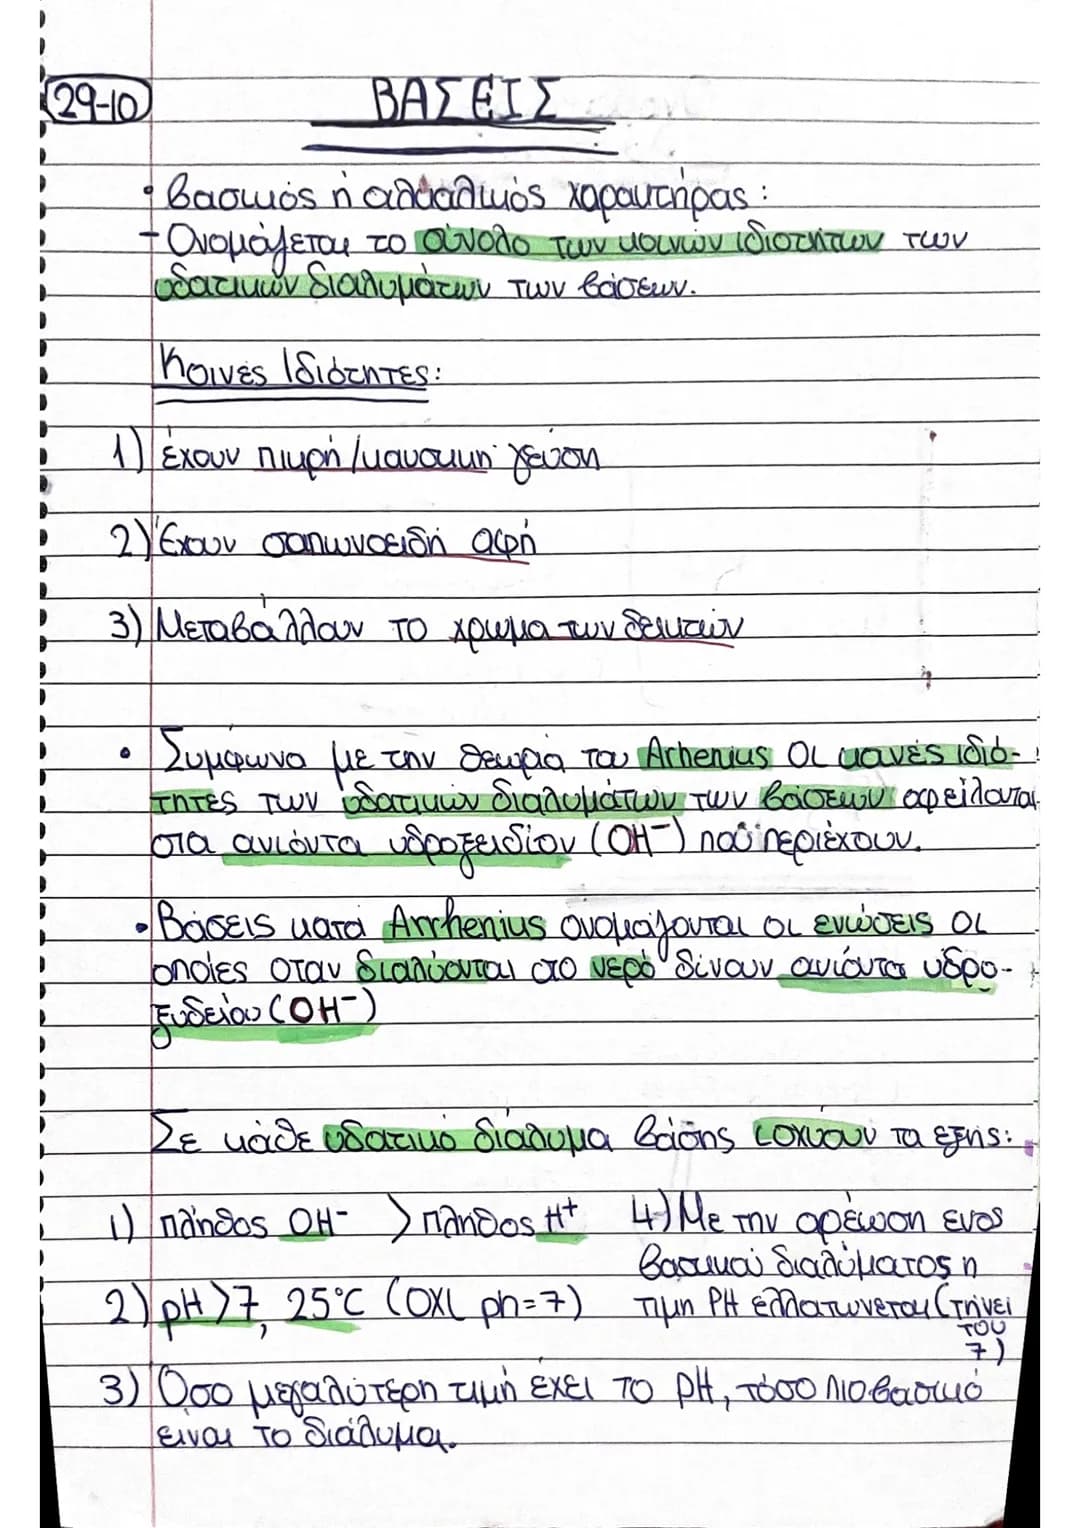 29-10
ΒΑΣΕΙΣ
• Βασικός ή αλκαλικός χαρακτήρας:
- Ονομάζεται το σύνολο των κοινών ιδιοτήτων των
υδατικών διαλυμάτων των βάσεων.
Κοινές Ιδιότητες:
1) έχουν πικρή/καυστική γεύση
2) Έχουν σαπωνοειδή αφή
3) Μεταβάλλουν το χρώμα των δεικτών
• Σύμφωνα με την θεωρία του Arhenius οι κοινές ιδιό-
τητες των υδατικών διαλυμάτων των βάσεων οφείλονται
στα ανιόντα υδροξειδίου (OH⁻) που περιέχουν.
• Βάσεις κατά Arrhenius ονομάζονται οι ενώσεις οι
οποίες οταν διαλύονται στο νερό δίνουν ανιόντα υδρο-
ξυδείου (OH⁻)
Σε κάθε υδατικό διάλυμα βάσης ισχύουν τα εξής:
1) πλήθος OH⁻ > πλήθος H⁺
2) pH>7, 25°C (οχι ph=7)
3) Όσο μεγαλύτερη τιμή έχει το pH, τόσο πιο βασικό
είναι το διάλυμα.
4) Με την αρέωση ενος
βασικού διαλύματος η
τιμη PH ελλατωνεται (τήνει
του
7)